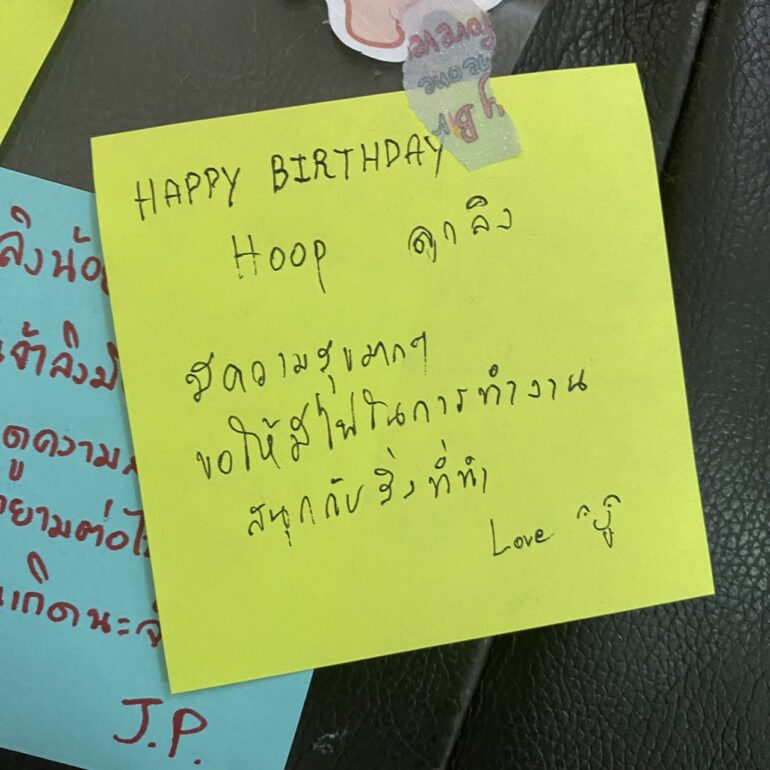 HAPPY BIRTHDAY
HOOP ลูกลิง
มีความสุขมากๆ
ขอให้มีไฟในการทำงาน
สนุกกับสิ่งที่ทำ
Love
ลิงน้อย
จ้าลิงมี
ดูความ
ยามต่อไ
เกิดนะจ
J.P.